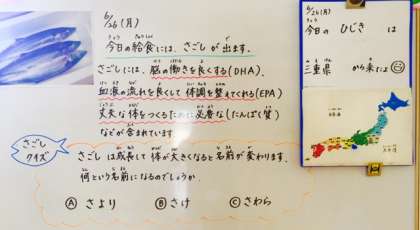 6/26(月)
今日の給食には、さごしが出ます。
さごしには、脳の働きを良くする(DHA)、
血液の流れを良くして体調を整えてくれる(EPA)
丈夫な体をつくるために必要な(たんぱく質)
などが含まれています
さごし
クイズ
さごしは成長して体が大きくなると名前が変わります。
何という名前になるのでしょうか。
Ⓐ さより Ⓑ さけ Ⓒ さわら
6/26(月)
今日の ひじき は
三重県 から来たよ